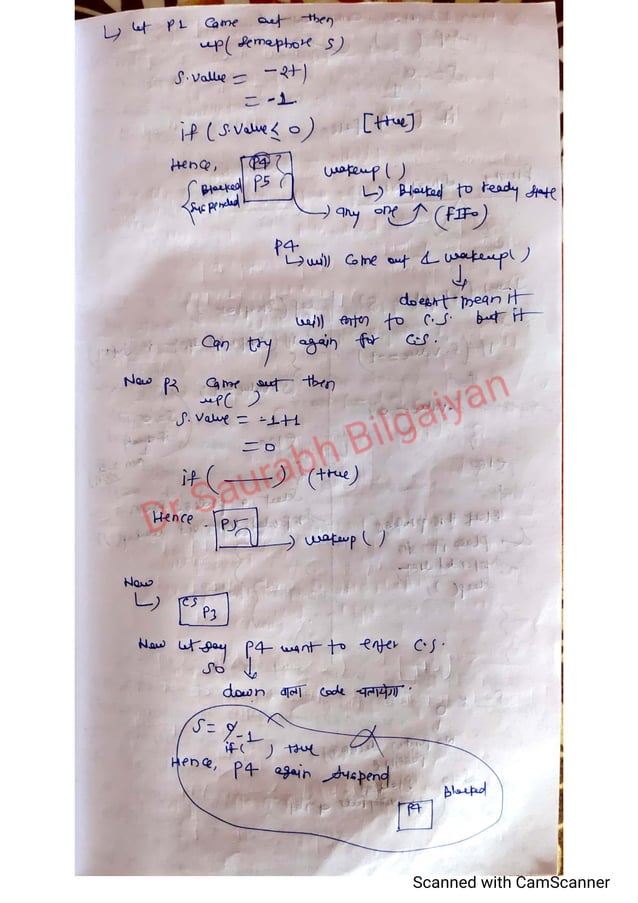 ↳ let P1 Came out then
up( Semaphore S)
S.value = -2+1
= -1
if (S.value ≤ 0) [true]
Hence, P4 wakeup( )
Blocked P5 ↳ Blocked to ready state
Suspended → any one (FIFO)
P4
↳ will Come out & wakeup( )
doesn't mean it
will enter to C.S. but it
Can try again for C.S.
Now P2 Came out then
up( )
S.value = -1+1
= 0
if ( —— ) (true)
Hence P5
→ wakeup( )
Now
↳ CS P3
Now let say P4 want to enter C.S.
so ↓
down वाला code चलायेगा.
S = 0 -1
if( ) true
Hence, P4 again Suspend
Blocked
P4
Dr Saurabh Bilgaiyan
Scanned with CamScanner